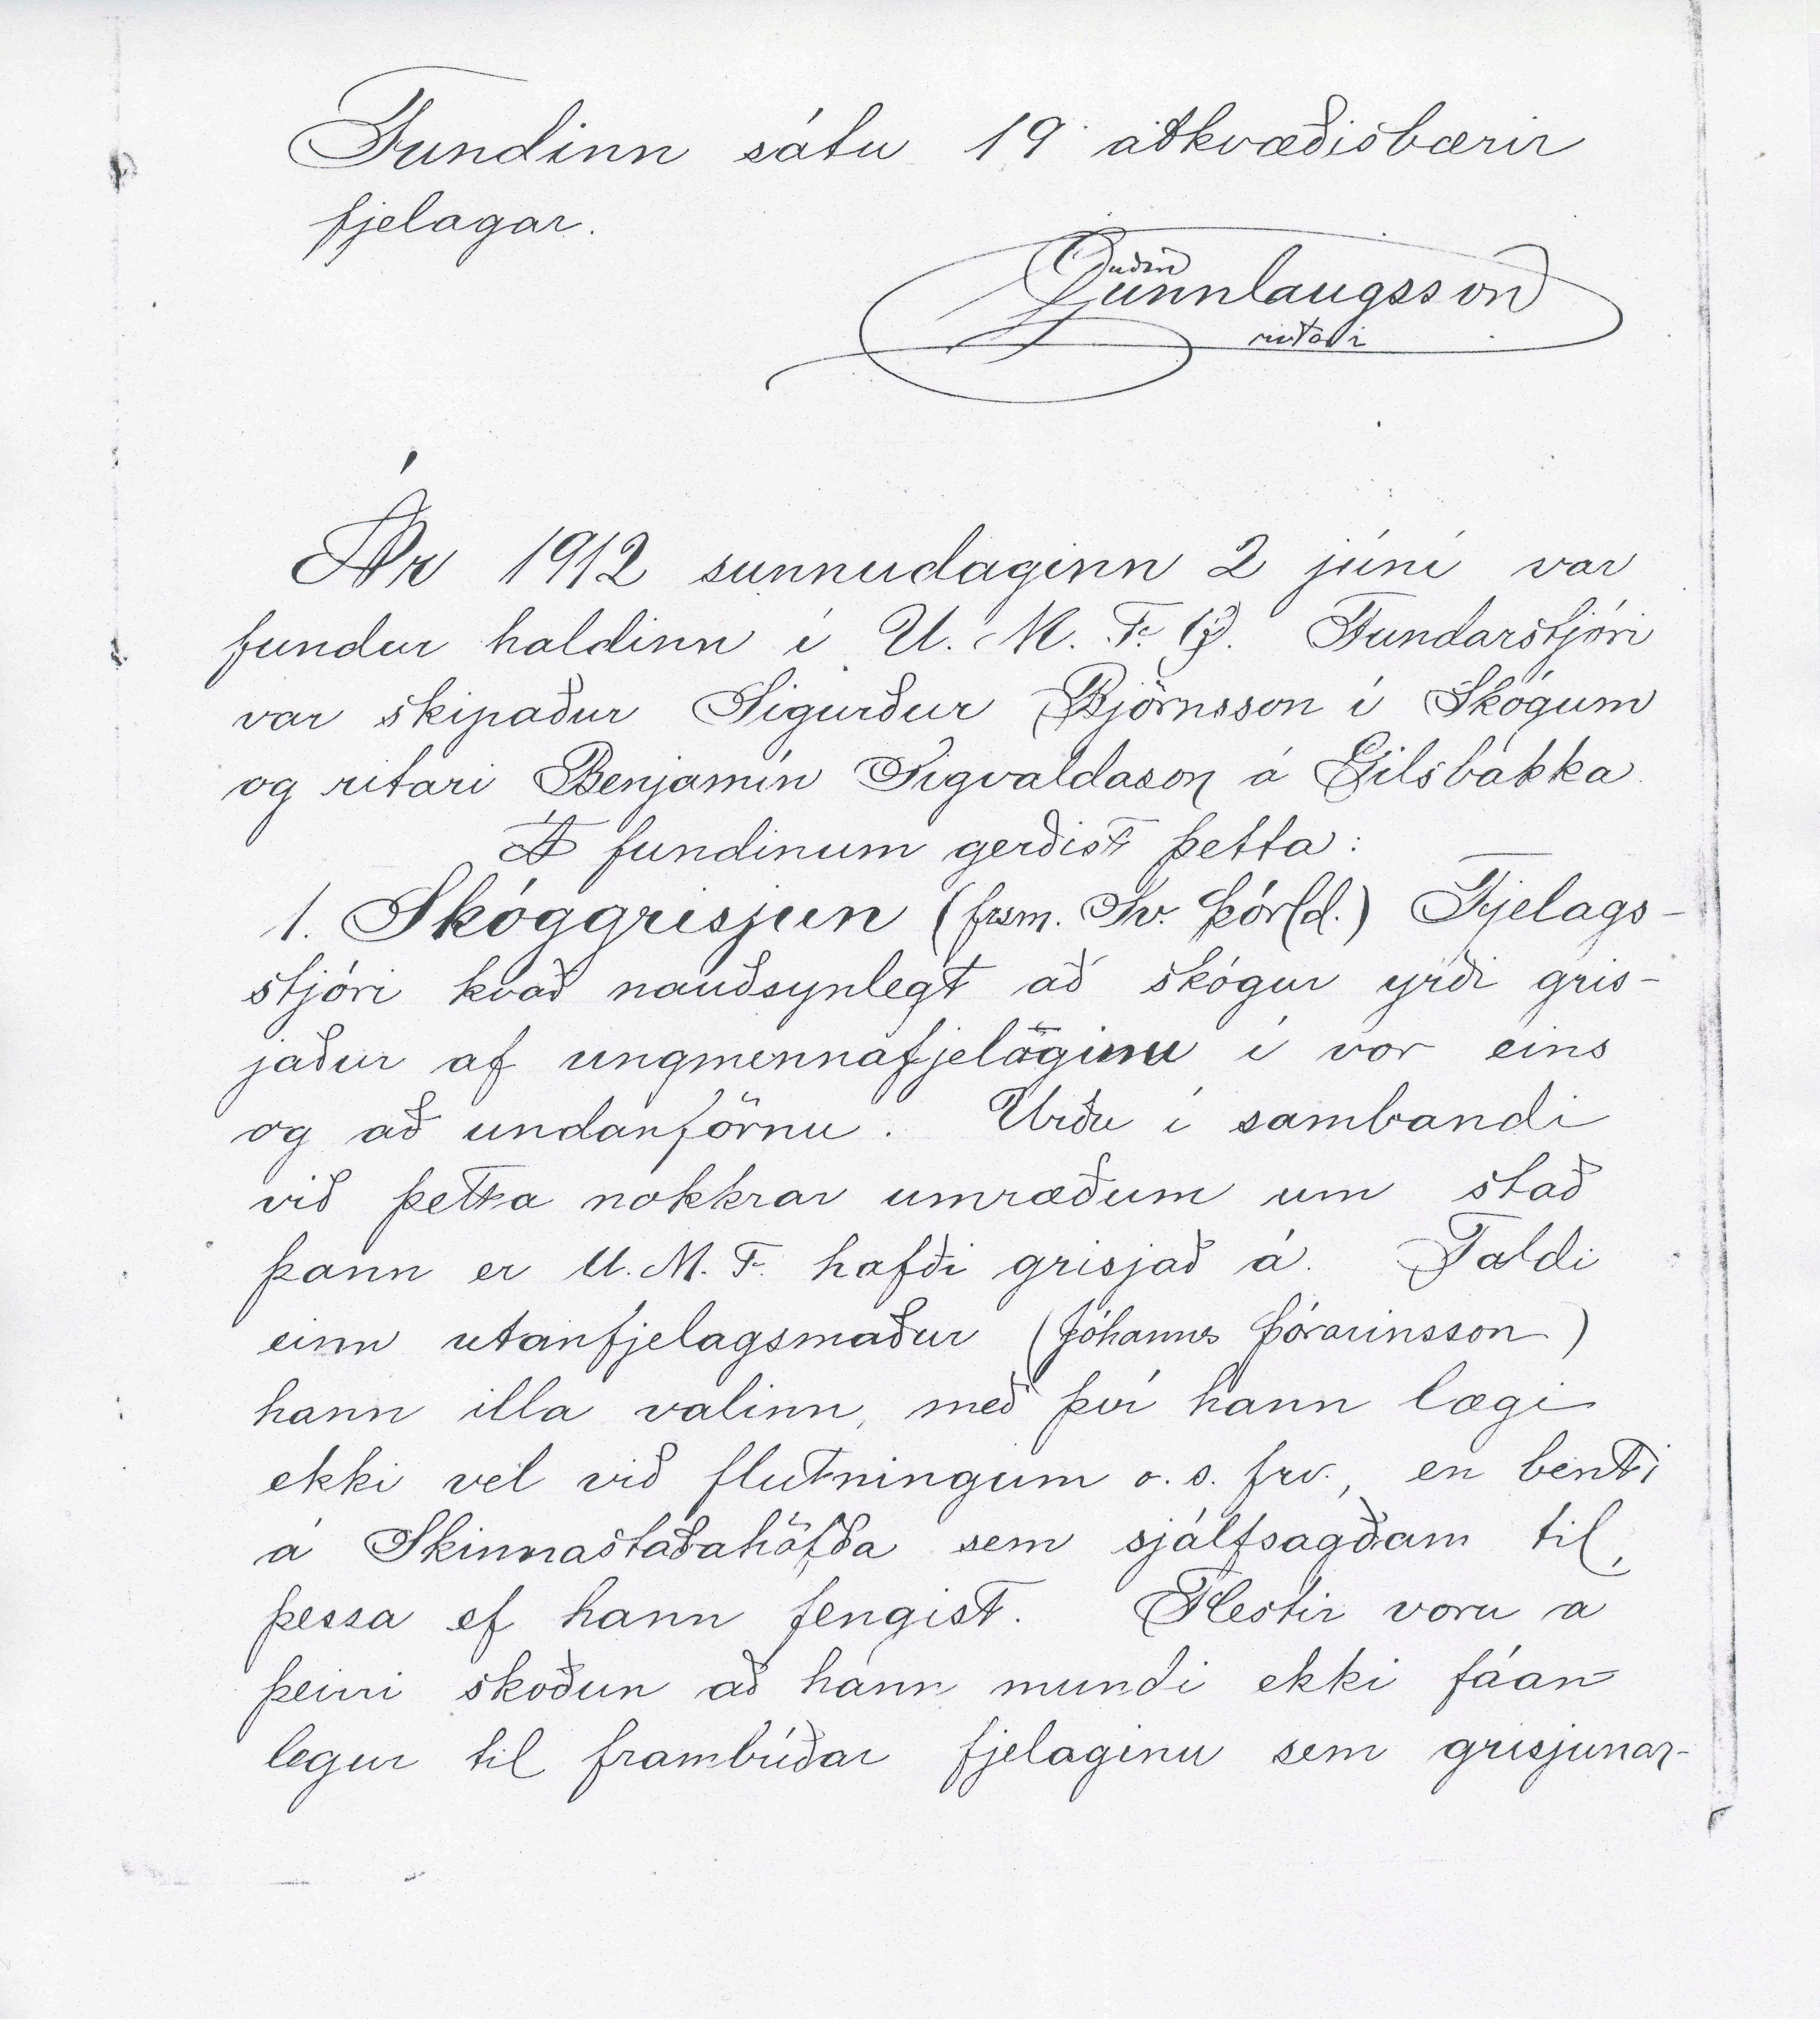 Fundinn sátu 19 atkvæðisbærir
fjelagar.
Gunnlaugsson
ritari
Ár 1912 sunnudaginn 2 júní var
fundur haldinn í U. M. F. Ö. Fundarstjóri
var skipaður Sigurður Björnsson í Skógum
og ritari Benjamín Sigvaldason á Gilsbakka
Á fundinum gerðist þetta:
1. Skóggrisjun (frsm. Sv. Þór(d.) Fjelags-
stjóri kvað nauðsynlegt að skógur yrði gris-
jaður af ungmennafjelaginu í vor eins
og að undanförnu. Urðu í sambandi
við þetta nokkrar umræðum um stað
þann er U. M. F. hafði grisjað á. Taldi
einn utanfjelagsmaður (Jóhannes Þórarinsson)
hann illa valinn, með því hann lægi
ekki vel við flutningum o. s. frv., en benti
á Skinnastaðahöfða sem sjálfsagðam til
þessa ef hann fengist. Flestir voru á
þeirri skoðun að hann mundi ekki fáan
legur til frambúðar fjelaginu sem grisjunar-